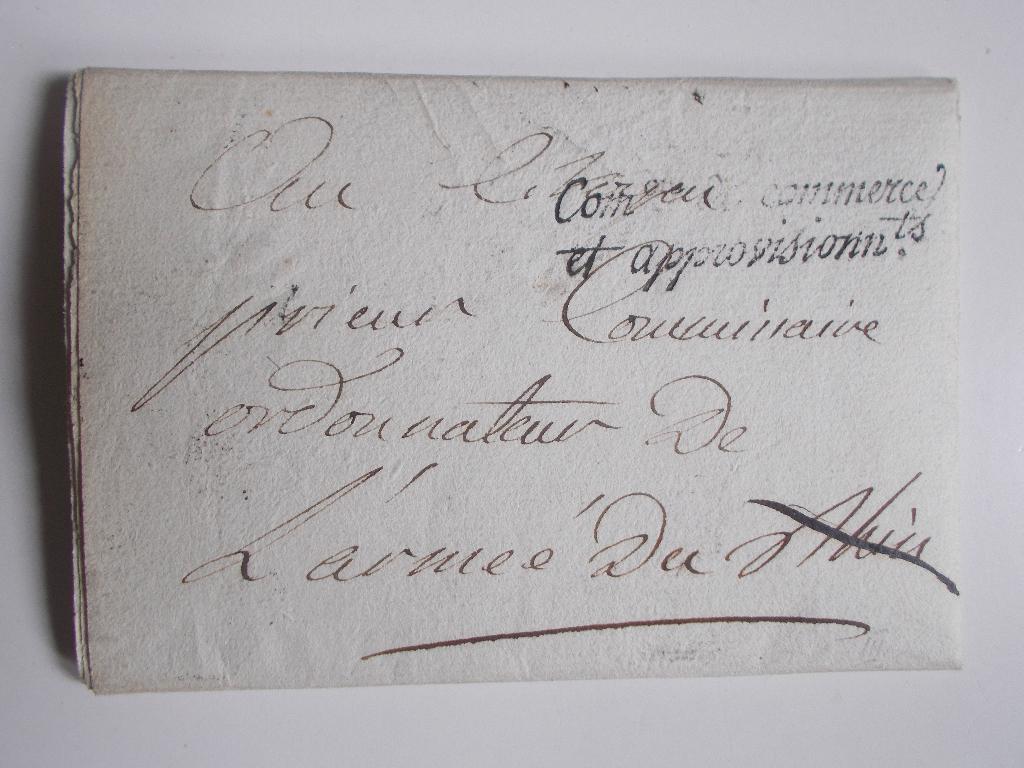 Au Citoyen
Com de commerce
et approvisionn.ts
prieur Commissaire
ordonnateur De
L'armée Du Rhin